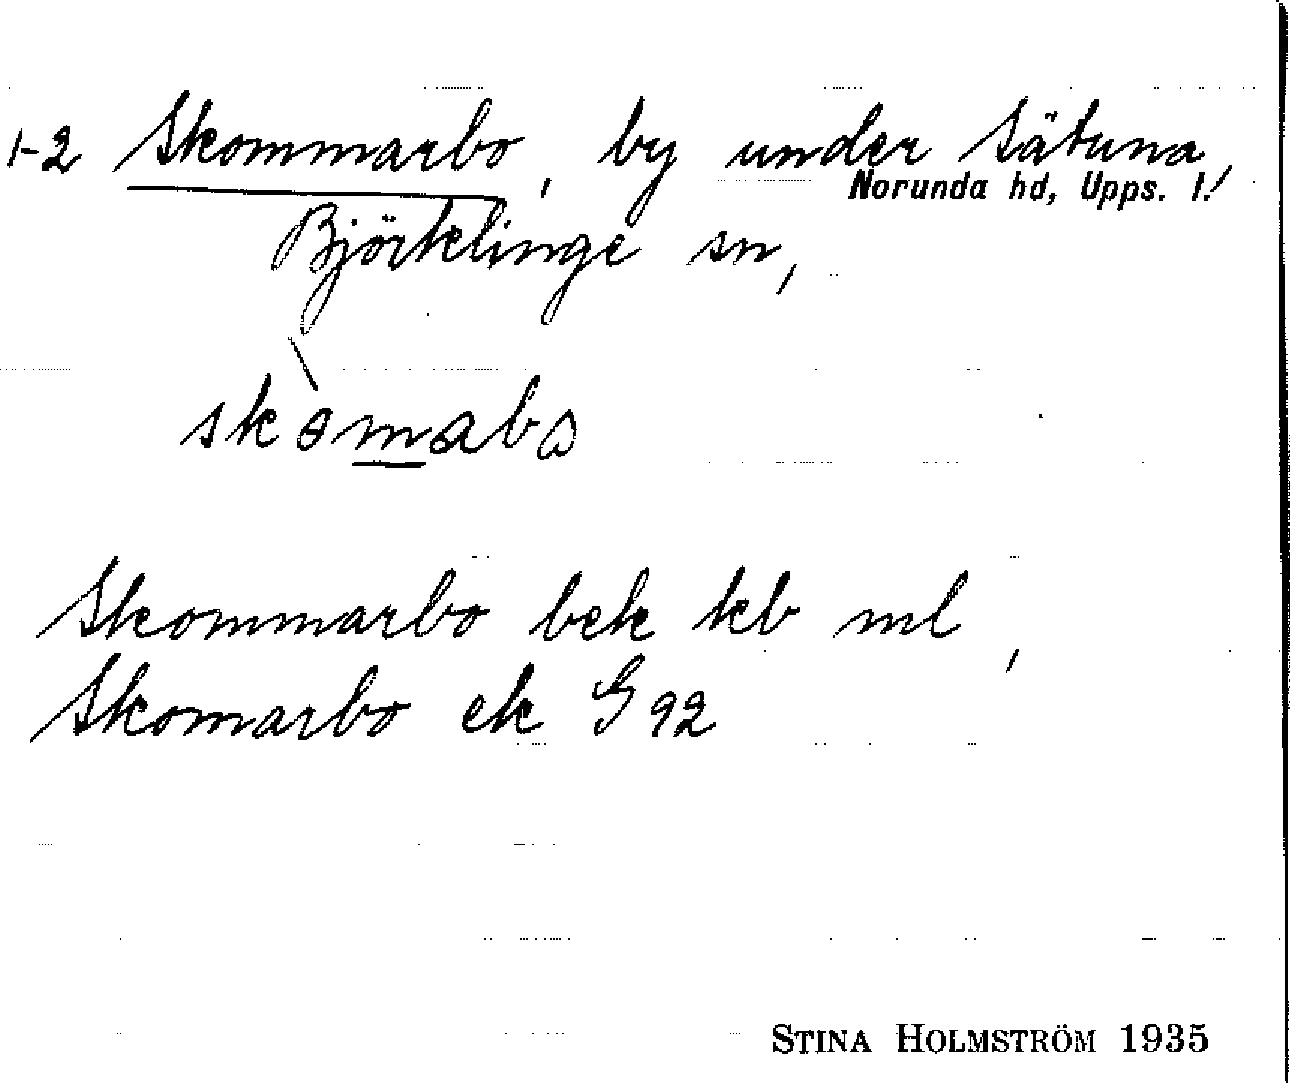 1-2 Skommarbo, by under Sätuna,
Norunda hd, Upps. l.
Björklinge sn,
skòmabɷ
Skommarbo bek kb ml,
Skomarbo ek G 92
STINA HOLMSTRÖM 1935